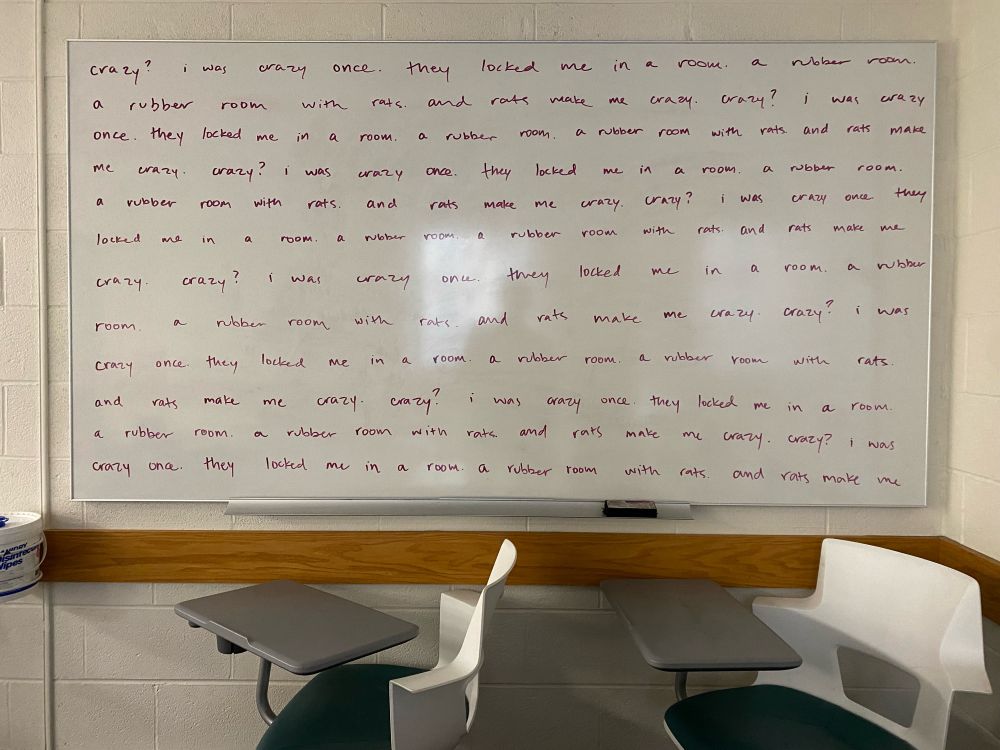 crazy? i was crazy once. they locked me in a room. a rubber room.
a rubber room with rats. and rats make me crazy. crazy? i was crazy
once. they locked me in a room. a rubber room. a rubber room with rats. and rats make
me crazy. crazy? i was crazy once. they locked me in a room. a rubber room.
a rubber room with rats. and rats make me crazy. crazy? i was crazy once they
locked me in a room. a rubber room. a rubber room with rats. and rats make me
crazy. crazy? i was crazy once. they locked me in a room. a rubber
room. a rubber room with rats. and rats make me crazy. crazy? i was
crazy once. they locked me in a room. a rubber room. a rubber room with rats.
and rats make me crazy. crazy? i was crazy once. they locked me in a room.
a rubber room. a rubber room with rats. and rats make me crazy. crazy? i was
crazy once. they locked me in a room. a rubber room with rats. and rats make me
Wipes